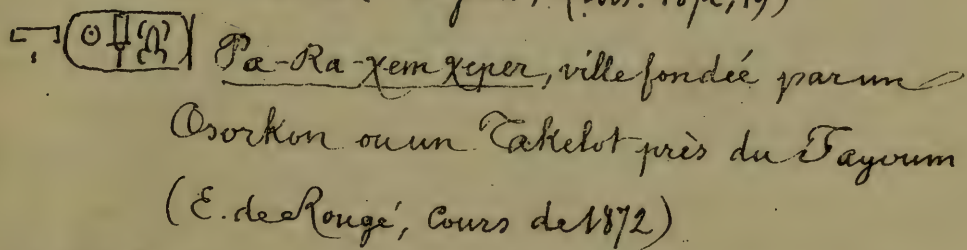 Pa-Ra-χem χeper, ville fondée par un
Osorkon ou un Takelot près du Fayoum
(E. de Rougé, Cours de 1872)